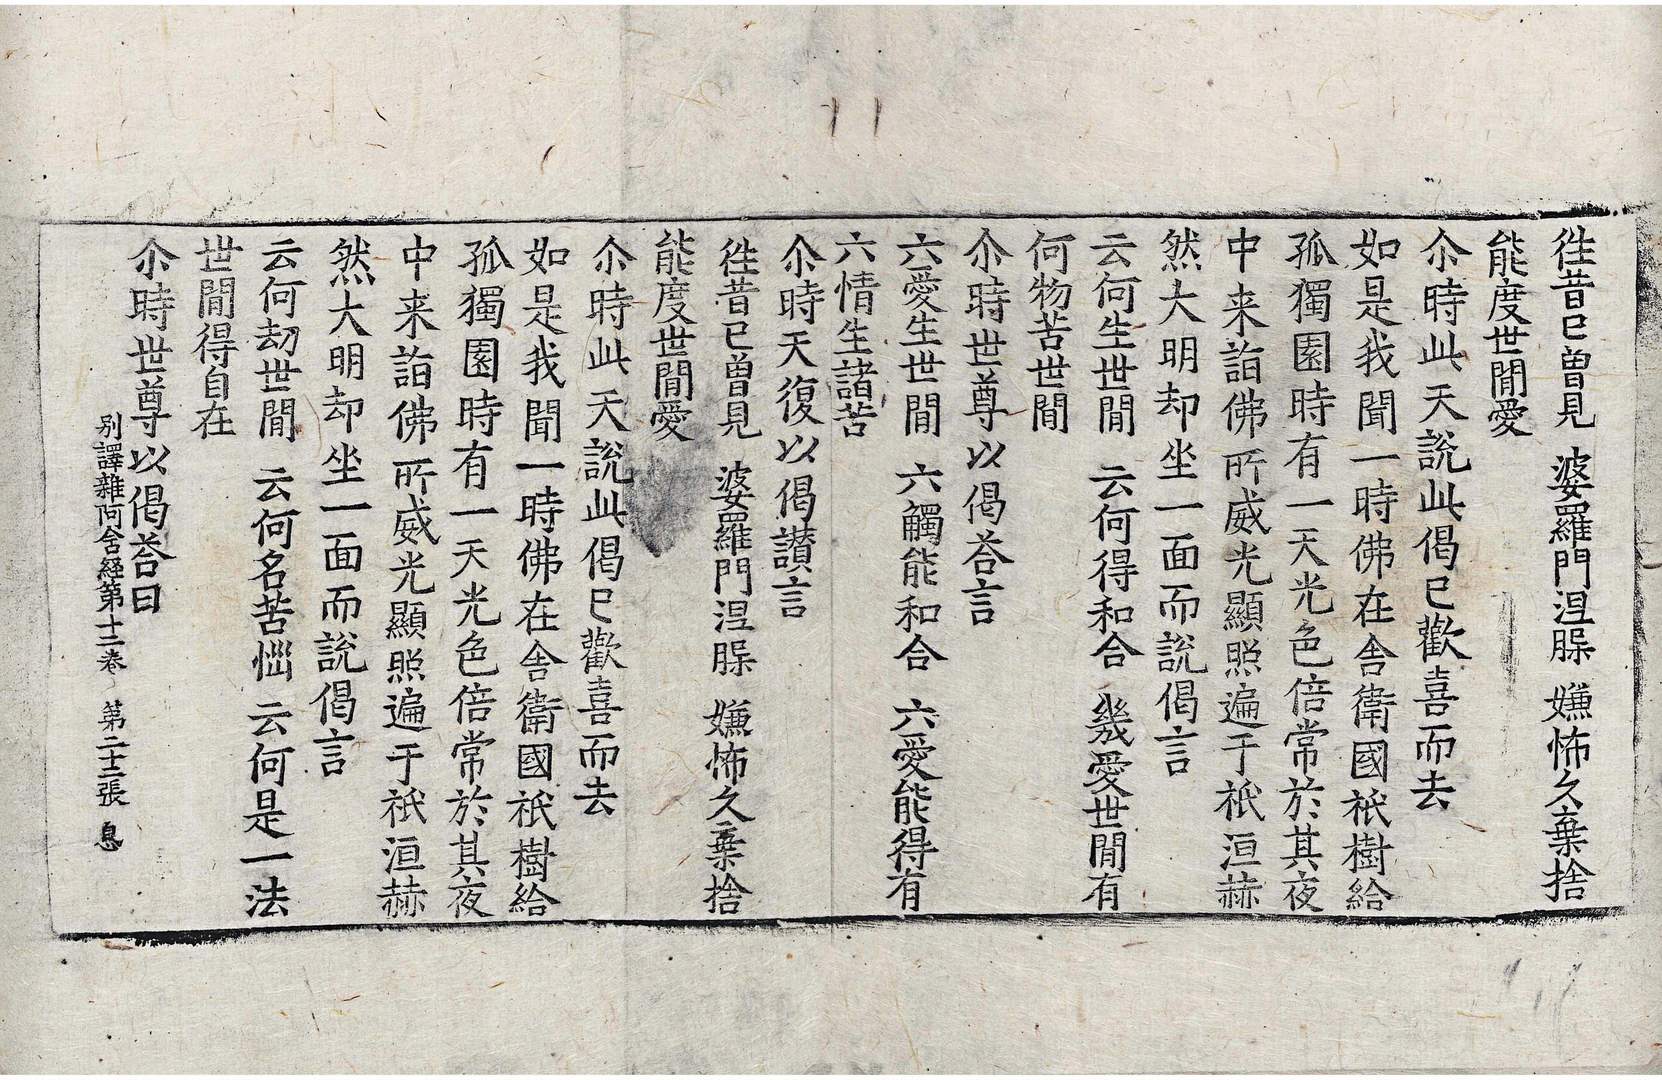 徃昔已曾見 婆羅門涅槃 嫌怖久棄捨
能度世閒愛
尒時此天說此偈已歡喜而去
如是我聞一時佛在舍衛國祇樹給
孤獨園時有一天光色倍常於其夜
中来詣佛所威光顯照遍于祇洹赫
然大明却坐一面而說偈言
云何生世閒 云何得和合 幾愛世閒有
何物苦世閒
尒時世尊以偈荅言
六愛生世閒 六觸能和合 六愛能得有
六情生諸苦
尒時天復以偈讃言
徃昔已曾見 婆羅門涅槃 嫌怖久棄捨
能度世閒愛
尒時此天說此偈已歡喜而去
如是我聞一時佛在舍衛國祇樹給
孤獨園時有一天光色倍常於其夜
中来詣佛所威光顯照遍于祇洹赫
然大明却坐一面而說偈言
云何劫世閒 云何名苦惱 云何是一法
世閒得自在
尒時世尊以偈荅曰
別譯雜阿含経第十二卷 第二十二張 息